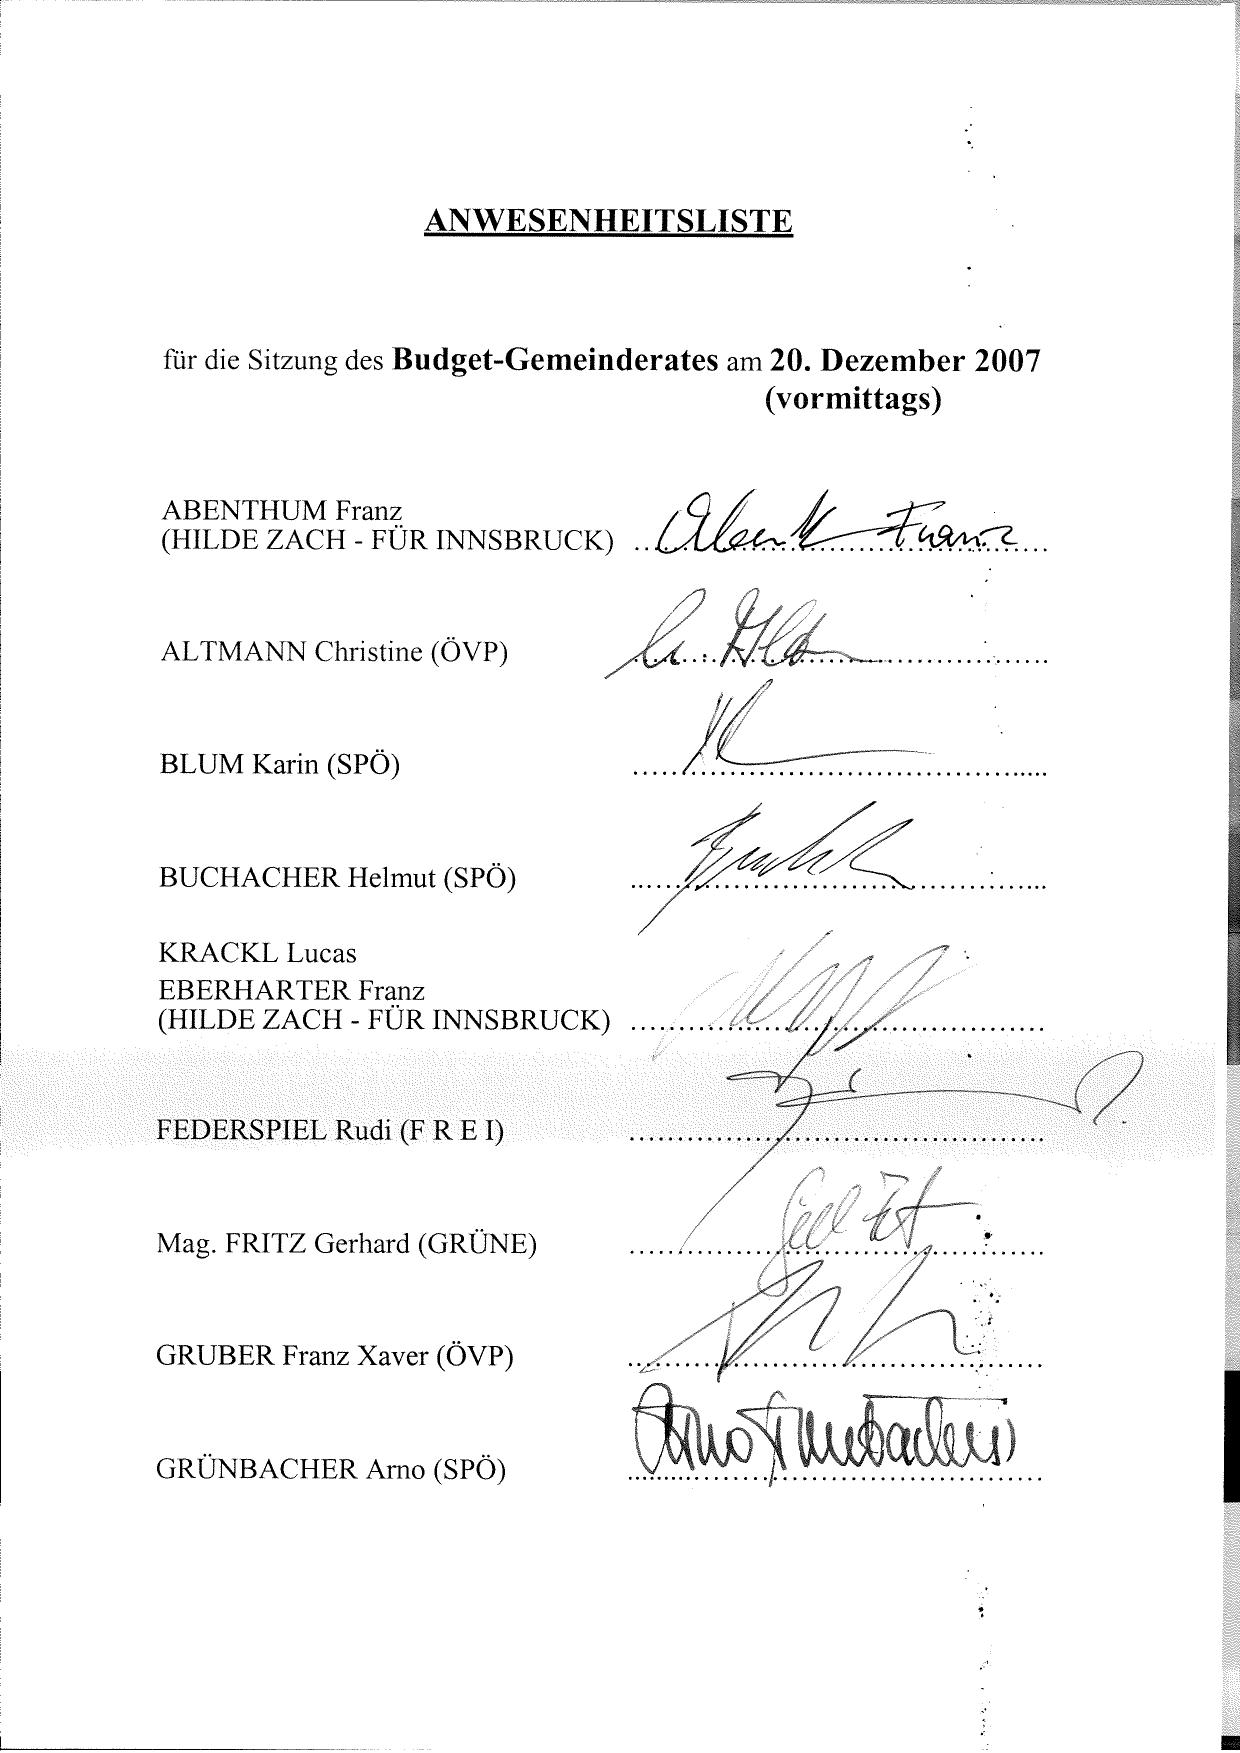 ANWESENHEITSLISTE
für die Sitzung des Budget-Gemeinderates am 20. Dezember 2007
(vormittags)
ABENTHUM Franz
(HILDE ZACH - FÜR INNSBRUCK) Franz
ALTMANN Christine (ÖVP)
BLUM Karin (SPÖ)
BUCHACHER Helmut (SPÖ)
KRACKL Lucas
EBERHARTER Franz
(HILDE ZACH - FÜR INNSBRUCK)
FEDERSPIEL Rudi (F R E I)
Mag. FRITZ Gerhard (GRÜNE)
GRUBER Franz Xaver (ÖVP)
Arno Grünbacher
GRÜNBACHER Arno (SPÖ)